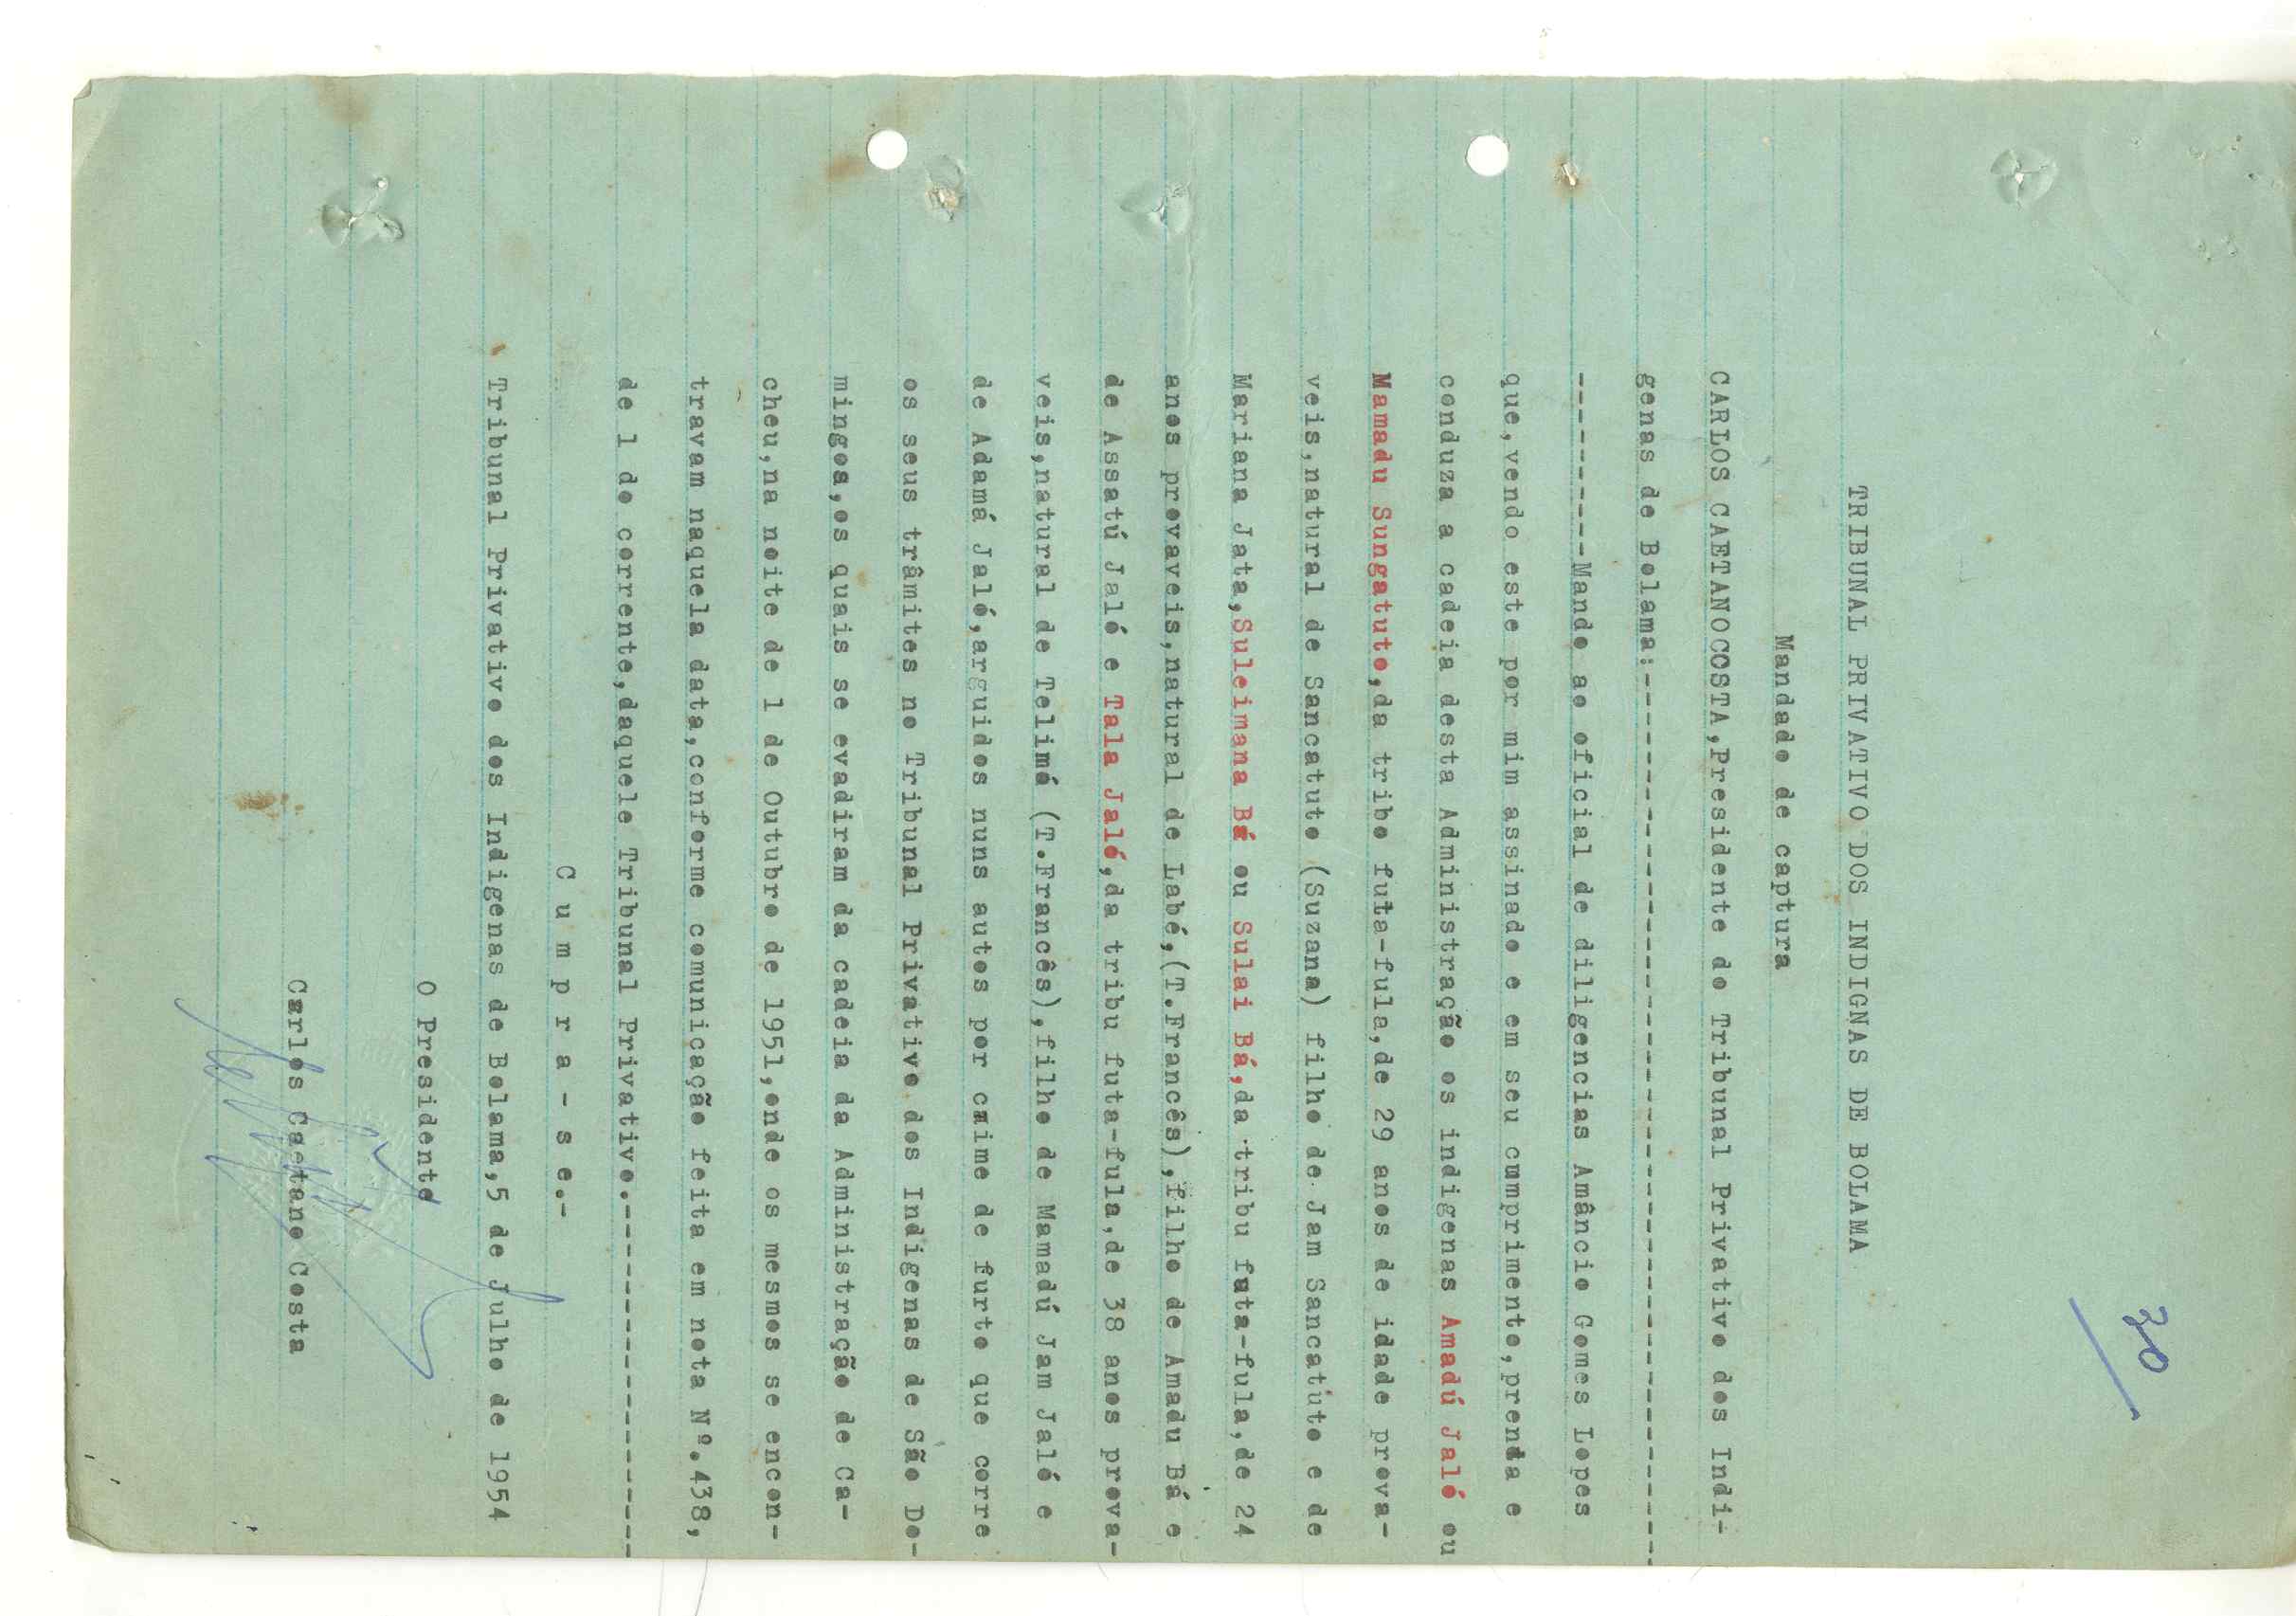 30
TRIBUNAL PRIVATIVO DOS INDIGNAS DE BOLAMA
Mandado de captura
CARLOS CAETANOCOSTA,Presidente do Tribunal Privativo dos Indi-
genas de Bolama:-----------------------------------------------
----------Mando ao oficial de diligencias Amâncio Gomes Lopes
que,vendo este por mim assinado e em seu cumprimento,prenda e
conduza a cadeia desta Administração os indigenas Amadú Jaló ou
Mamadu Sungatuto,da tribo futa-fula,de 29 anos de idade prova-
veis,natural de Sancatuto (Suzana) filho de Jam Sancatúto e de
Mariana Jata,Suleimana Bá ou Sulai Bá,da tribu futa-fula,de 24
anos provaveis,natural de Labé,(T.Francês),filho de Amadu Bá e
de Assatú Jaló e Tala Jaló,da tribu futa-fula,de 38 anos prova-
veis,natural de Telimó (T.Francês),filho de Mamadú Jam Jaló e
de Adamá Jaló,arguidos nuns autos por crime de furto que corre
os seus trâmites no Tribunal Privativo dos Indigenas de São Do-
mingos,os quais se evadiram da cadeia da Administração de Ca-
cheu,na noite de 1 de Outubro de 1951,onde os mesmos se encon-
travam naquela data,conforme comunicação feita em nota Nº.438,
de 1 do corrente,daquele Tribunal Privativo.---------------------
C u m p r a - s e.-
Tribunal Privativo dos Indigenas de Bolama,5 de Julho de 1954
O Presidente
Carlos Caetano Costa